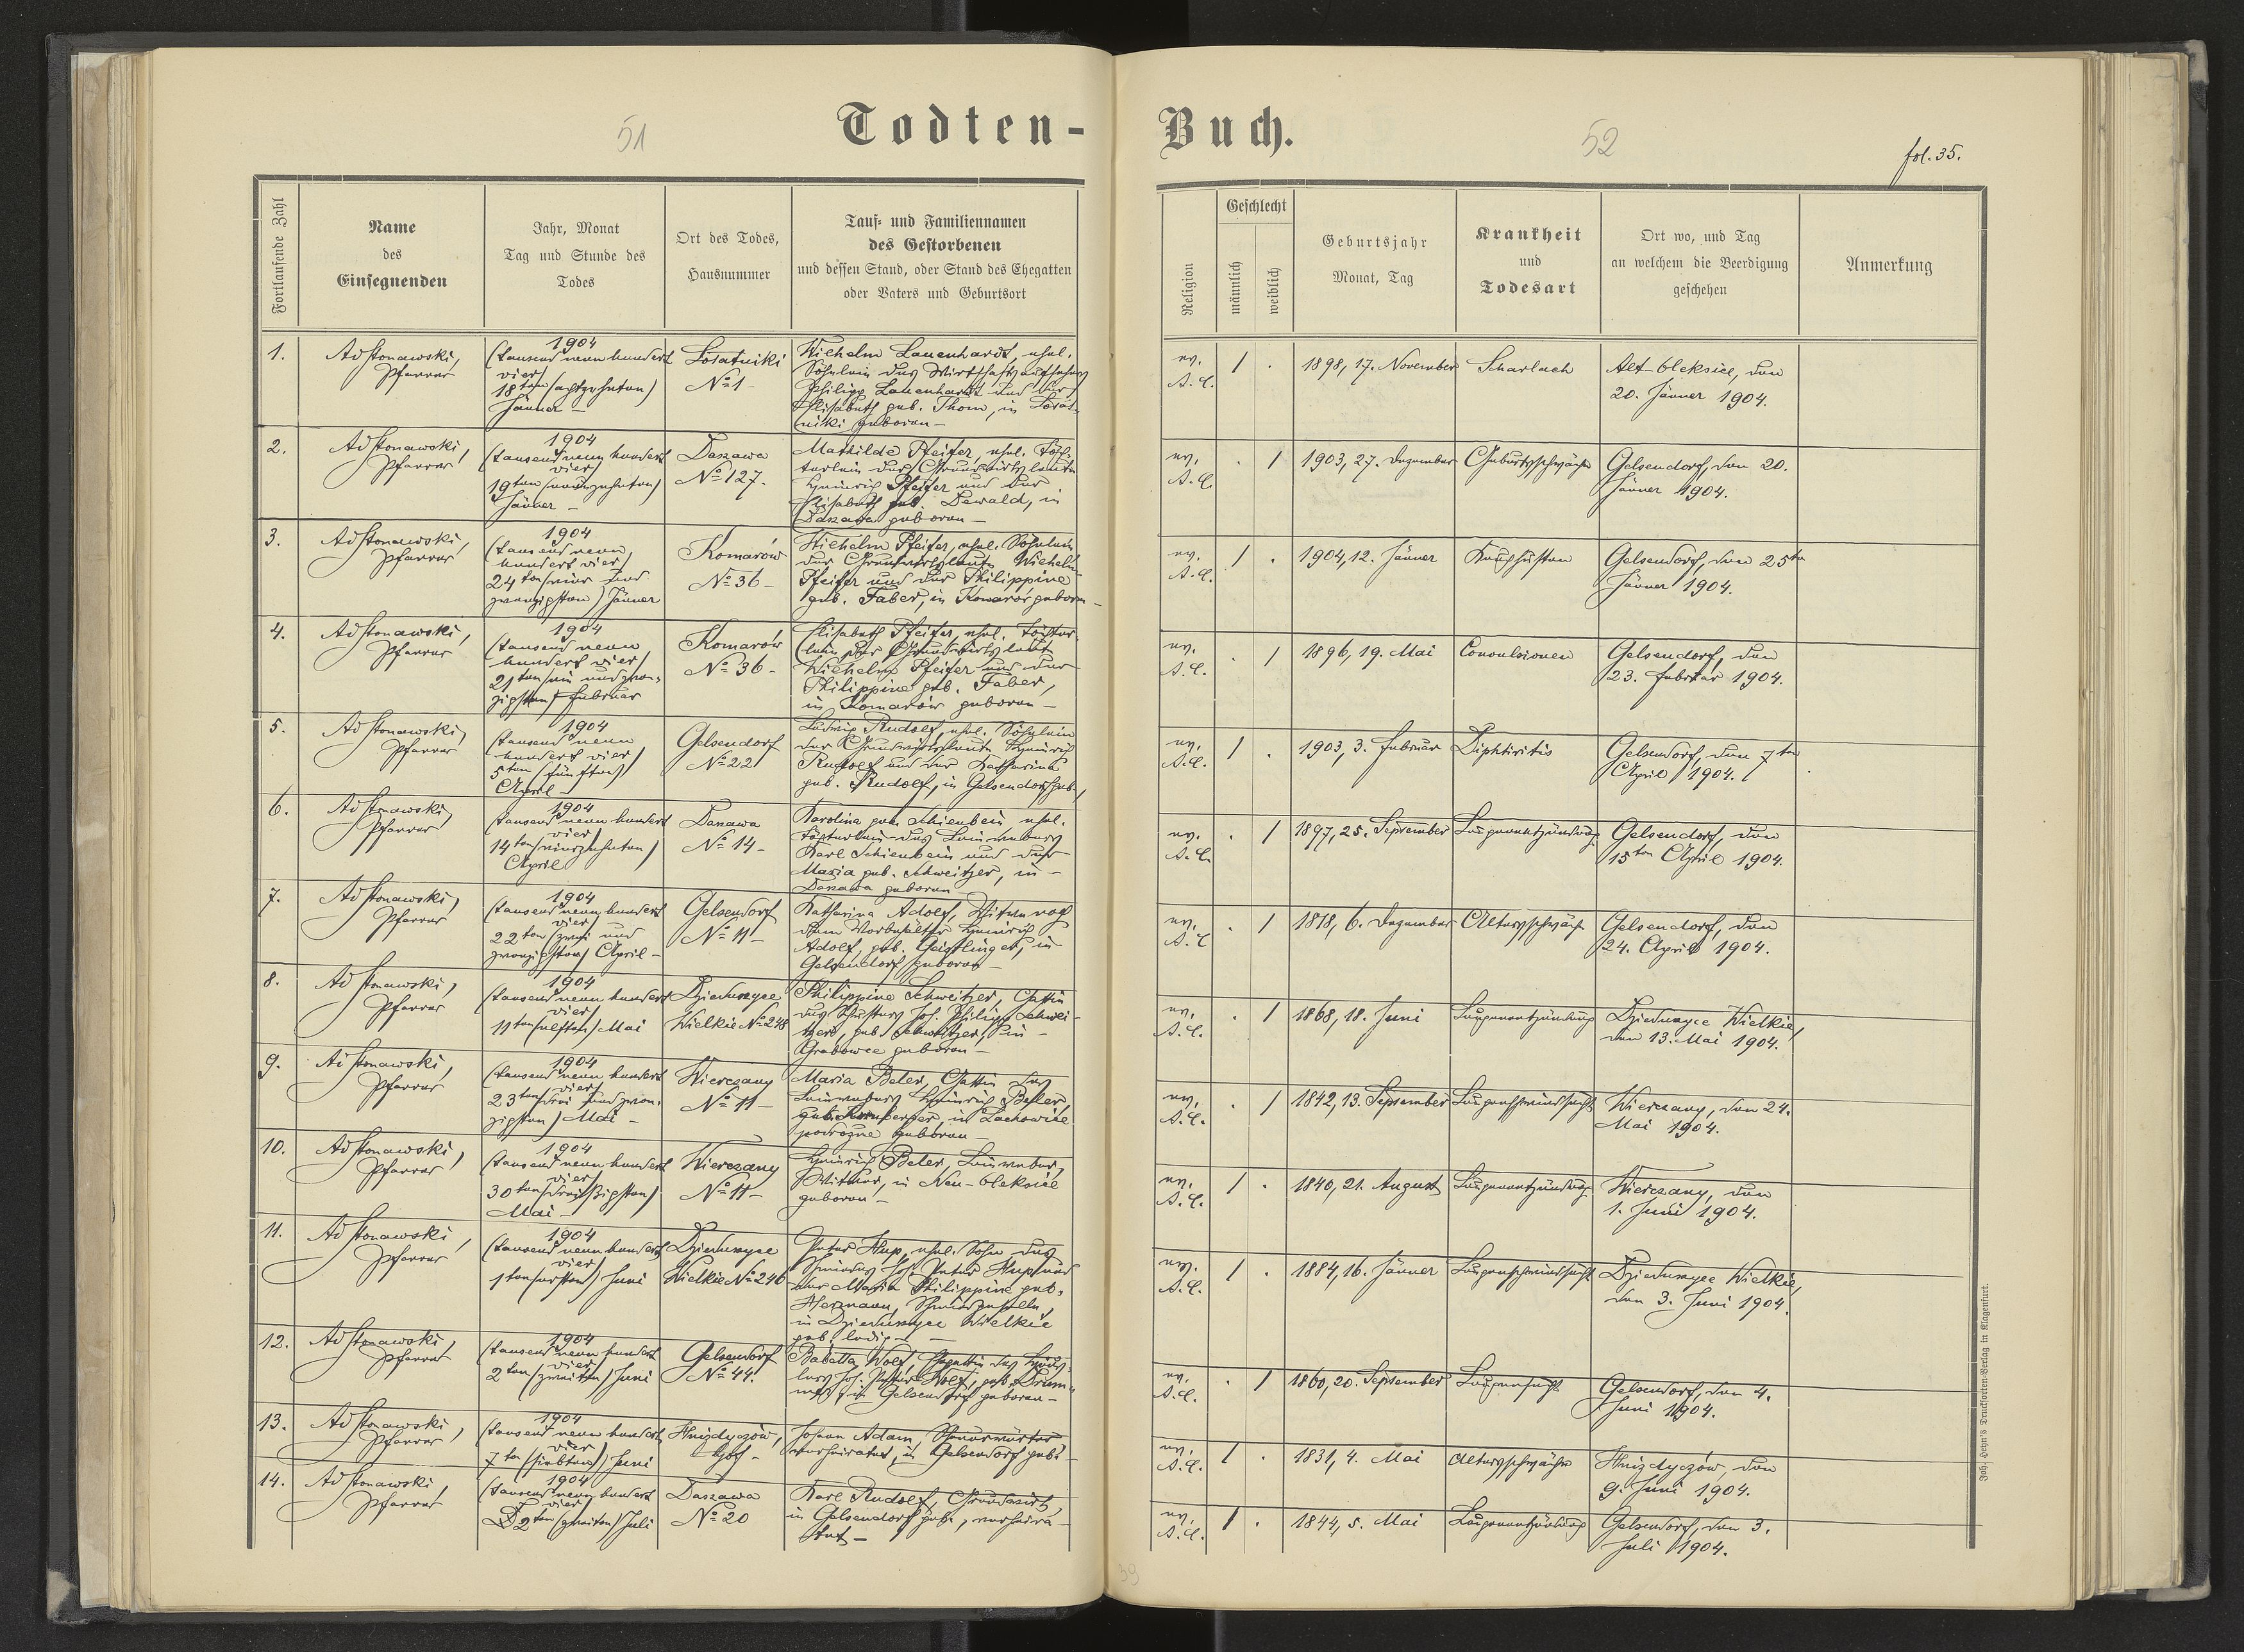 51
Todten-
Fortlaufende Zahl
Name
des
Einsegnenden
Jahr, Monat
Tag und Stunde des
Todes
Ort des Todes,
Hausnummer
Tauf- und Familiennamen
des Gestorbenen
und dessen Stand, oder Stand des Ehegatten
oder Vaters und Geburtsort
1.
Ad Stonawski,
Pfarrer
1904
(tausend neun hundert
vier)
18ten (achtzehnten)
Jänner –
Łosatniki
No 1 –
Wilhelm Lauenhardt, ehel.
Söhnlein des Wirtschaftsaufsehers
Philipp Lauenhardt und der
Elisabeth geb. Thom, in Łosat-
niki geboren –
2.
Ad Stonawski,
Pfarrer
1904
(tausend neun hundert
vier)
19ten (neunzehnten)
Jänner –
Daszawa
No 127.
Mathilde Pfeifer, ehel. Töch-
terlein der Grundwirtsleute
Heinrich Pfeifer und der
Elisabeth geb. Dewald, in
Daszawa geboren –
3.
Ad Stonawski,
Pfarrer
1904
(tausend neun
hundert vier)
24ten (vier und
zwanzigsten) Jänner
Komarów
No 36 –
Wilhelm Pfeifer, ehel. Söhnlein
der Grundwirtsleute Wilhelm
Pfeifer und der Philippine
geb. Faber, in Komarów geboren –
4.
Ad Stonawski,
Pfarrer
1904
(tausend neun
hundert vier)
21ten (ein und zwan-
zigsten) Februar
Komarów
No 36 –
Elisabeth Pfeifer, ehel. Töchter-
lein der Grundwirtsleute
Wilhelm Pfeifer und der
Philippine geb. Faber,
in Komarów geboren –
5.
Ad Stonawski,
Pfarrer
1904
(tausend neun
hundert vier)
5ten (fünften)
April –
Gelsendorf
No 22
Ludwig Rudolf, ehel. Söhnlein
der Grundwirtsleute Heinrich
Rudolf und der Katharina
geb. Rudolf, in Gelsendorf geb.
6.
Ad Stonawski,
Pfarrer
1904
(tausend neun hundert
vier)
14ten (vierzehnten)
April
Daszawa
No 14 –
Karolina geb. Schienbein ehel.
Töchterlein des Leinwebers
Karl Schienbein und der
Maria geb. Schweitzer, in –
Daszawa geboren
7.
Ad Stonawski,
Pfarrer
1904
(tausend neun hundert
vier)
22ten (zwei und
zwanzigsten) April –
Gelsendorf
No 11 –
Katharina Adolf, Witwe nach
dem Vorbehälter Heinrich
Adolf, geb. Geistlinger, in
Gelsendorf geboren –
8.
Ad Stonawski,
Pfarrer
1904
(tausend neun hundert
vier)
11ten (elften) Mai
Dzieduszyce
Wielkie No 248
Philippine Schweitzer, Gattin
des Schusters Joh. Philipp Schwei-
tzer, geb. Schweitzer, in –
Grabowce geboren –
9.
Ad Stonawski,
Pfarrer
1904
(tausend neun hundert
vier)
23ten (drei und zwan-
zigsten) Mai –
Wierczany
No 11 –
Maria Beler, Gattin des
Leinwebers Heinrich Beler,
geb. Kornberger, in Lachowice
podrożne geboren –
10.
Ad Stonawski,
Pfarrer
1904
(tausend neun hundert
vier)
30ten (dreißigsten)
Mai –
Wierczany
No 11 –
Heinrich Beler, Leinweber,
Witwer, in Neu-Oleksice
geboren –
11.
Ad Stonawski,
Pfarrer
1904
(tausend neun hundert
vier)
1ten (ersten) Juni
Dzieduszyce
Wielkie No 246
Peter Hup, ehel. Sohn des
Schmiedes Joh. Peter Hup und
der Maria Philippine geb.
Hermann, Schmiedgeselle,
in Dzieduszyce Wielkie
geb. ledig –
12.
Ad Stonawski,
Pfarrer
1904
(tausend neun hundert
vier)
2ten (zweiten) Juni
Gelsendorf
No 44.
Babetta Wolf, Ehegattin des Häus-
lers Joh. Peter Wolf, geb.
in Gelsendorf geboren –
13.
Ad Stonawski,
Pfarrer
1904
(tausend neun hundert
vier
7ten (siebten) Juni
Hnizdyczów,
Hof –
Johann Adam,
verheiratet, in Gelsendorf geb. –
14.
Ad Stonawski,
Pfarrer
1904
(tausend neun hundert
vier)
2ten (zweiten) Juli
Daszawa
No 20
Karl Rudolf, Grundwirt,
in Gelsendorf geb., verheira-
tet –
Buch.
52
fol. 35.
Religion
Geschlecht
männlich
weiblich
Geburtsjahr
Monat, Tag
Krankheit
und
Todesart
Ort wo, und Tag
an welchem die Beerdigung
geschehen
Anmerkung
ev.
A.C.
1 .
1898, 17. November
Scharlach
Alt-Oleksice, den
20. Jänner 1904.
ev.
A.C.
. 1
1903, 27. Dezember
Geburtsschwäche
Gelsendorf, den 20.
Jänner 1904.
ev.
A.C.
1 .
1904, 12. Jänner
Keuchhusten
Gelsendorf, den 25ten
Jänner 1904.
ev.
A.C.
. 1
1896, 19. Mai
Convulsionen
Gelsendorf, den
23. Februar 1904.
ev.
A.C.
1 .
1903, 3. Februar
Diphtiritis
Gelsendorf, den 7ten
April 1904.
ev.
A.C.
. 1
1897, 25. September
Lungenentzündung
Gelsendorf, den
15ten April 1904.
ev.
A.C
. 1
1818, 6. Dezember
Altersschwäche
Gelsendorf, den
24. April 1904.
ev.
A.C.
. 1
1868, 18. Juni
Lungenentzündung
Dzieduszyce Wielkie,
den 13. Mai 1904.
ev.
A.C.
. 1
1842, 13. September
Lungenschwindsucht
Wierczany, den 24.
Mai 1904.
ev.
A.C.
1 .
1840, 21. August
Lungenentzündung
Wierczany, den
1. Juni 1904.
ev.
A.C.
1 .
1884, 16. Jänner
Lungenschwindsucht
Dzieduszyce Wielkie,
den 3. Juni 1904.
ev.
A.C.
. 1
1860, 20. September
Lungensucht
Gelsendorf, den 4.
Juni 1904.
ev.
A.C.
1 .
1831, 4. Mai
Altersschwäche
Hnizdyczów, den
9. Juni 1904.
ev.
A.C.
1 .
1844, 5. Mai
Lungenentzündung
Gelsendorf, den 3.
Juli 1904.
Joh. Heyn's Drucksorten-Verlag in Klagenfurt.
39